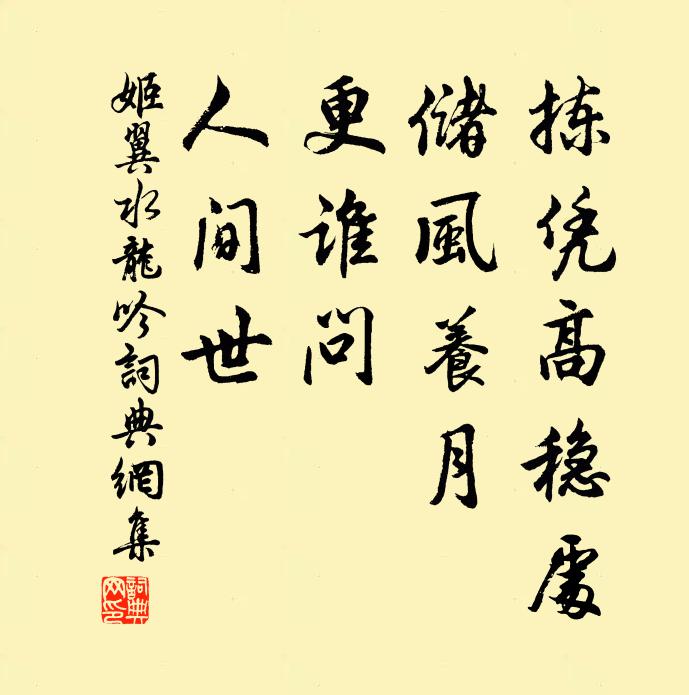 拣凭高稳處
储風養月
更谁问
人间世
姬翼水龍吟詞典網集
詞典网印